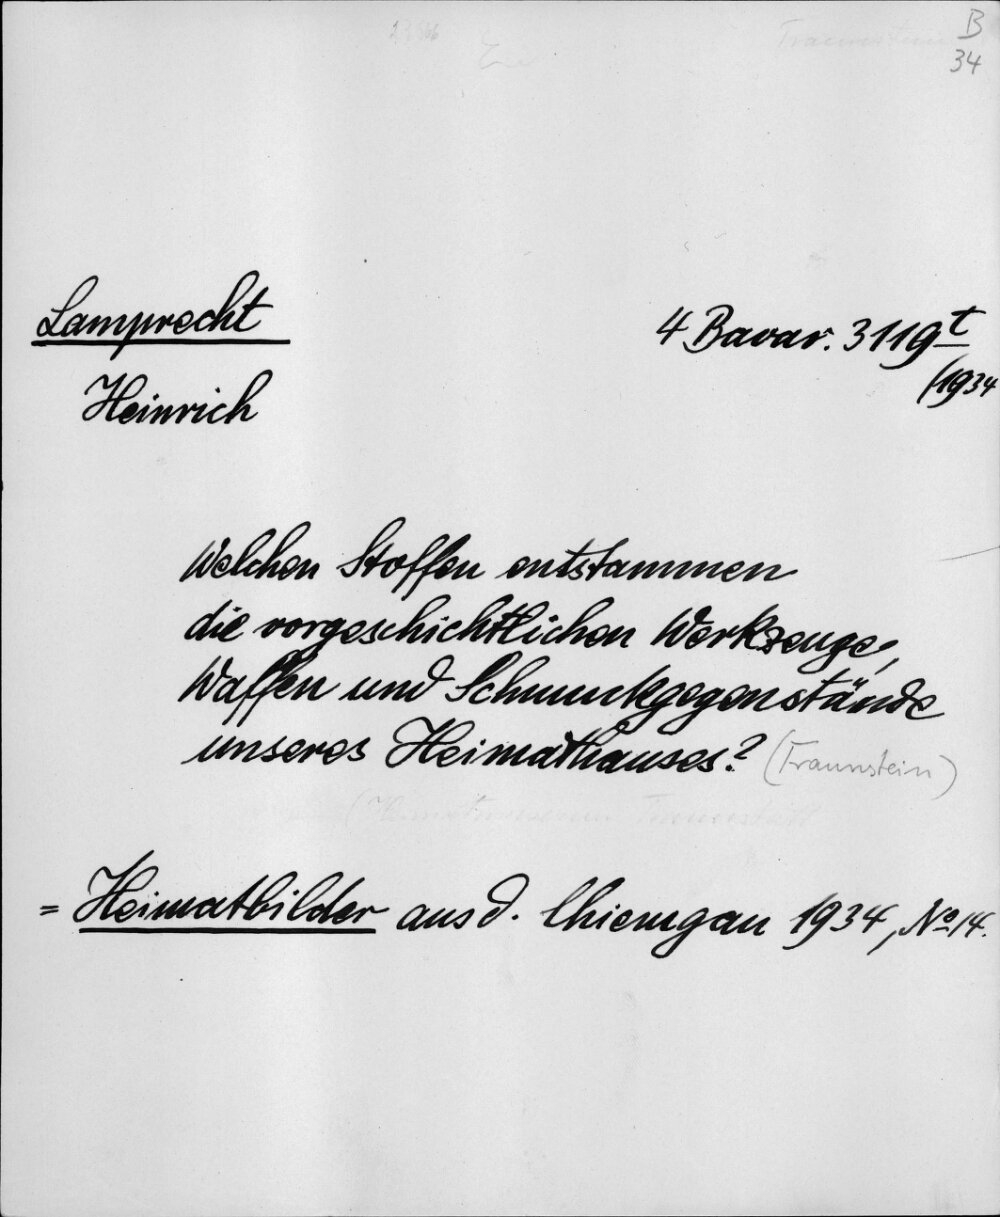 B
34
Lamprecht
4 Bavar. 3119 t
/1934
Heinrich
Welchen Stoffen entstammen
die vorgeschichtlichen Werkzeuge,
Waffen und Schmuckgegenstände
unseres Heimathauses? (Traunstein)
= Heimatbilder aus d. Chiemgau 1934, No 14.